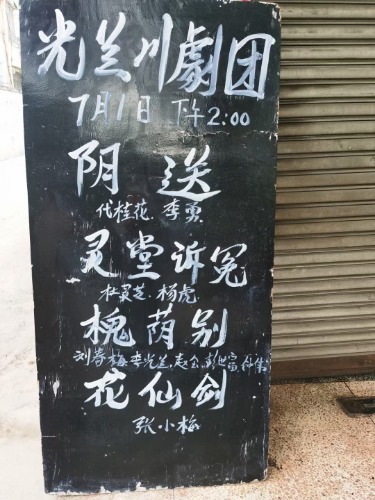 光兰川劇团
7月1日 下午2:00
阴送
代桂花.李勇
灵堂诉冤
杜灵芝.杨虎
槐荫别
刘芳梅 李光兰
花仙剑
张小梅